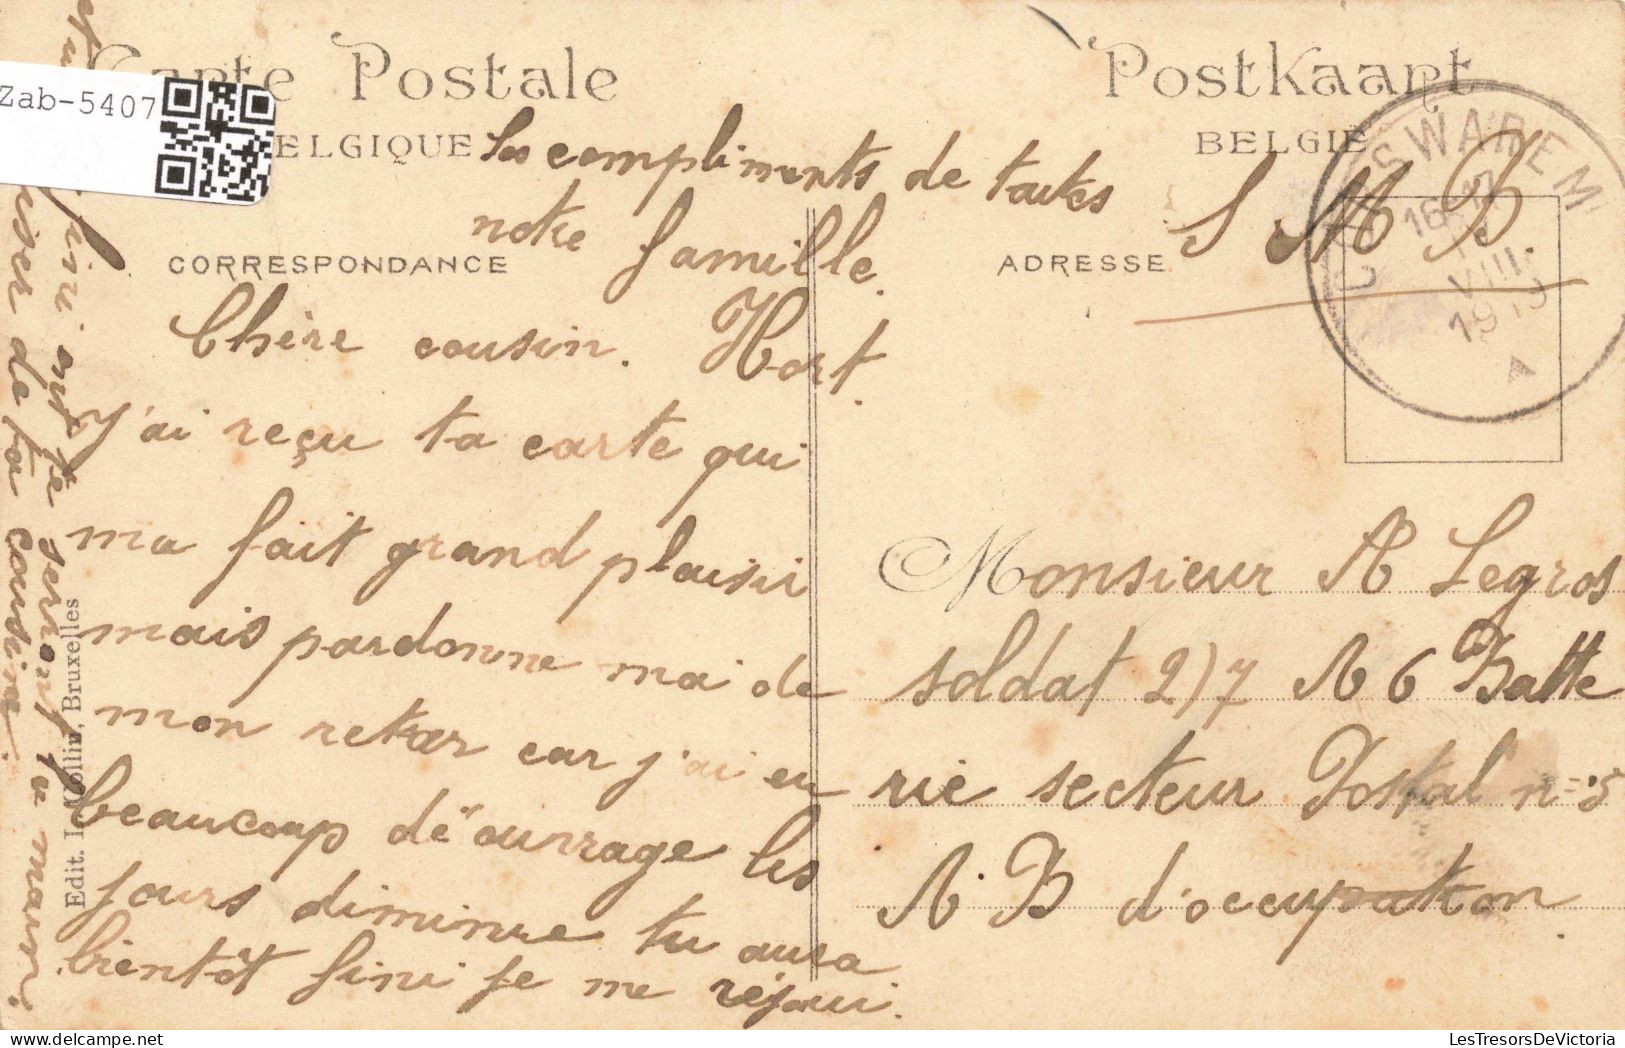 Carte Postale
Postkaart
Zab-5407
BELGIQUE
BELGIË
les compliments de toutes
notre famille.
CORRESPONDANCE
ADRESSE
S M B
CORSWAREM
16-17
VIII
1919
Chère cousin. Hort.
J'ai reçu ta carte qui
ma fait grand plaisir
mais pardonne moi de
mon retear car j'ai eu
beaucoup dë ouvrage les
jours diminue tu aura
bientôt fini je me réjoui.
fini nous se seront
de ta cousine.
Edit. L. Collin, Bruxelles
Monsieur A Legros
soldat 2)7 A 6 Batte
rie secteur Postal n=5
A. B d'occupation
LesTresorsDeVictoria